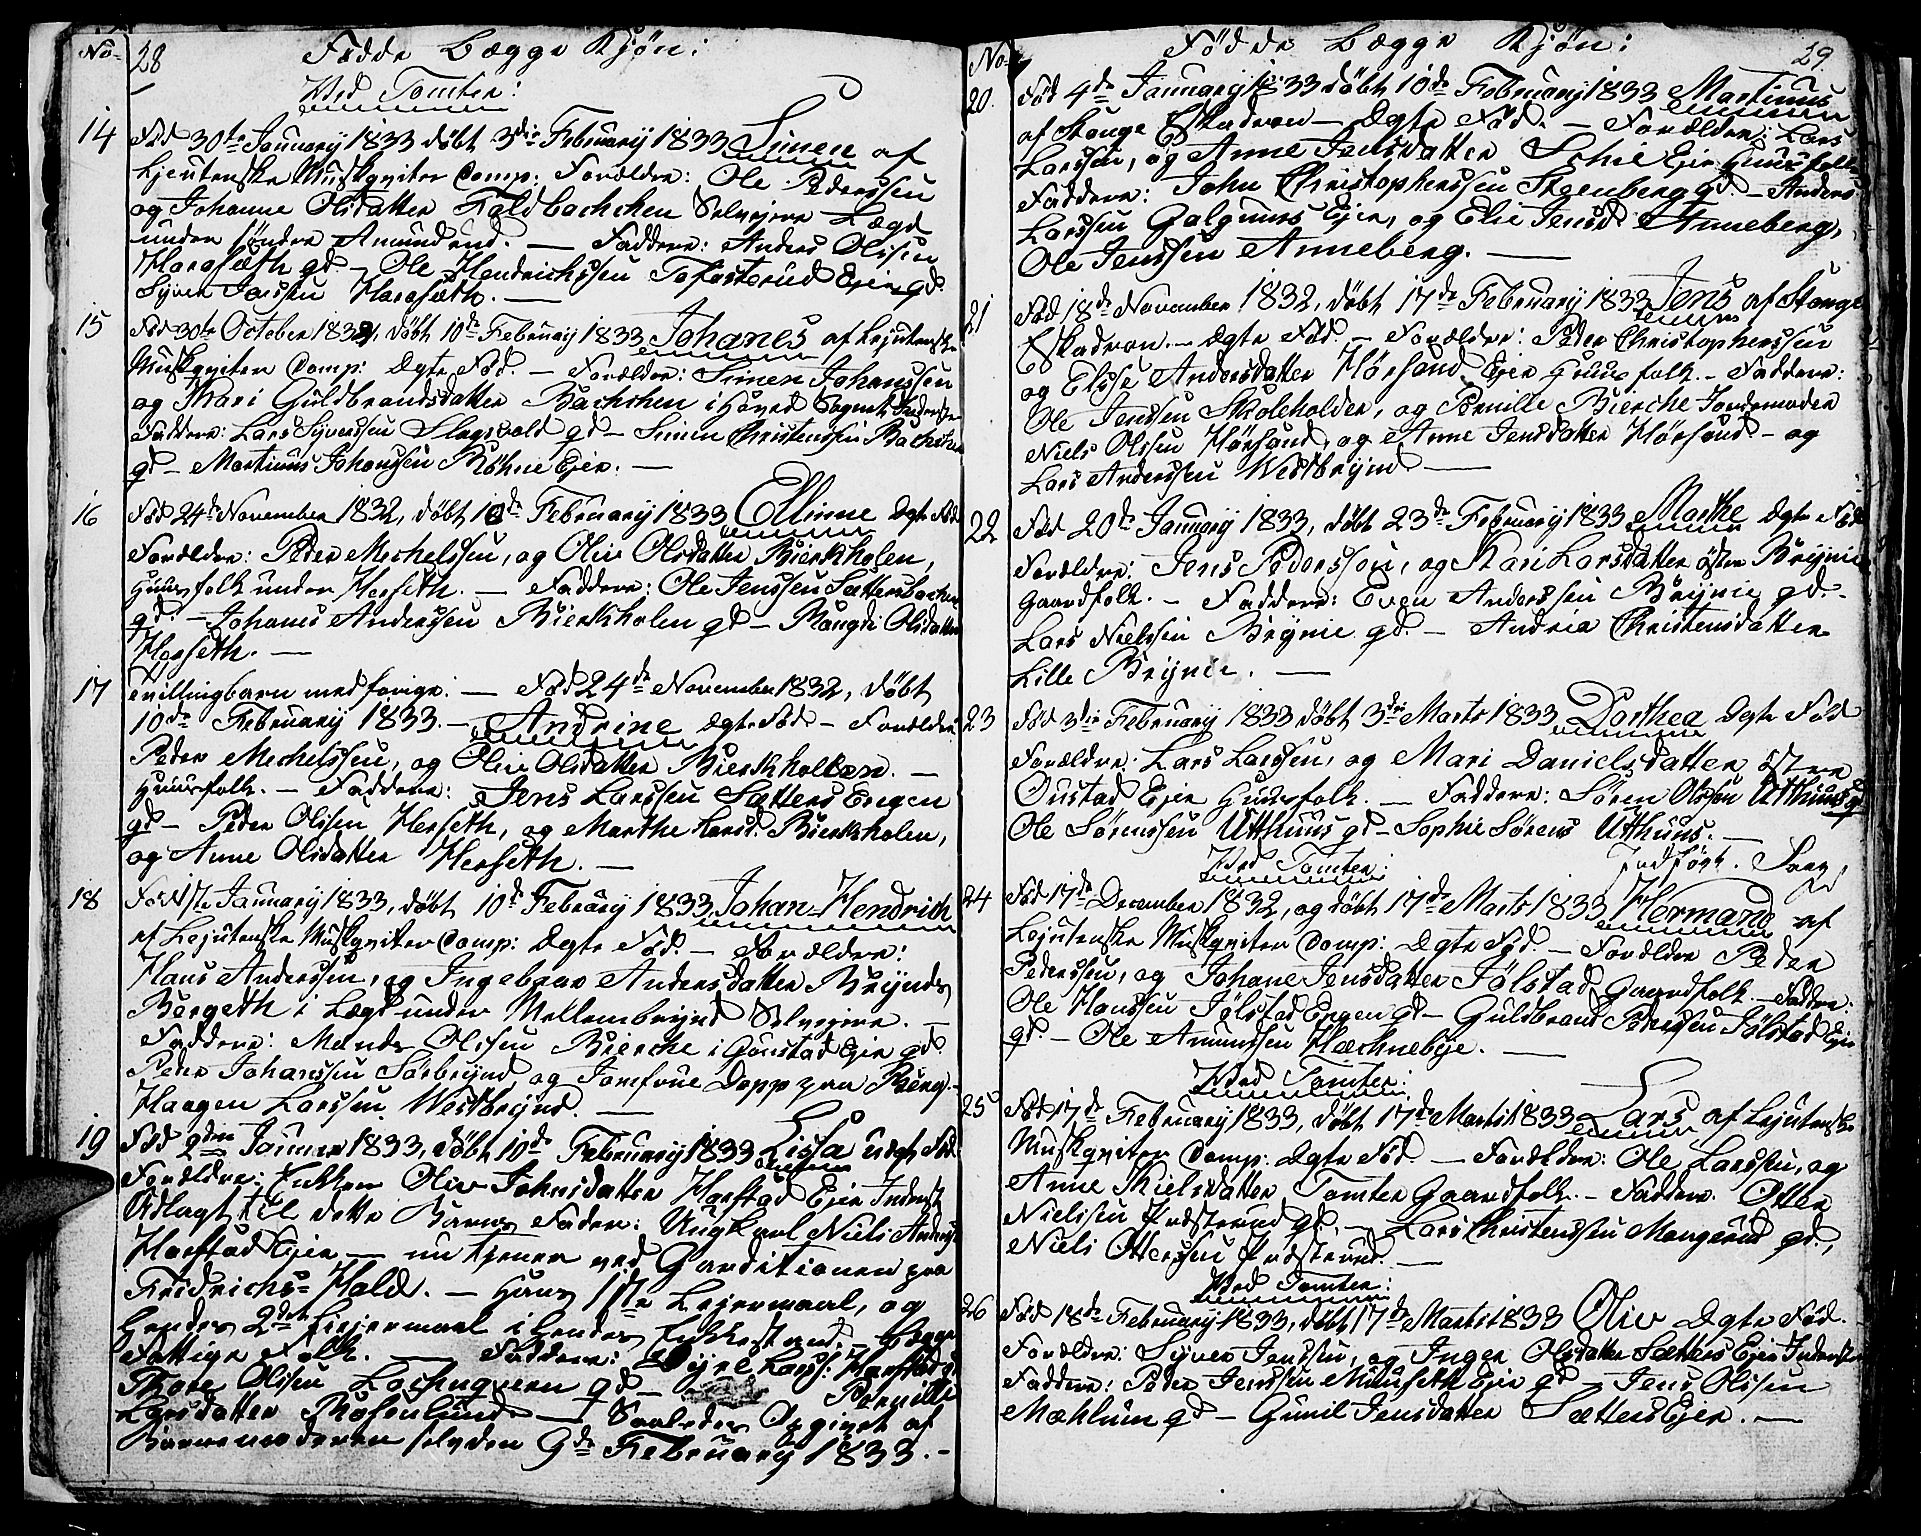 No
28 Fødde Bægge Kjøn:
Ved Tomter:
14 Fød 30te January 1833 døbt 3die February 1833 Simen af
Ljeutenske Muskqviter Comp: Forældre: Ole Pederssen
og Johanne Olsdatter Foldbachchen Selvejere Lægd
under söndre Amundrud. — Faddere: Anders Olssen
Horgsæth gd – Ole Hendrichssen Tofasterud Ejer gd.
Syver Larssen Horgsæth. —
15 Fød 30te October 1832, døbt 10de February 1833 Johanes af Lejutenske
Muskqviter Comp: Ægte Fød. – Forældre: Simen Johanssen
og Mari Guldbrandsdatter Bachchen i Hoved Sognet Inderster
Faddere: Lars Syverssen Slagsvold gd – Simen Christenssen Bachchen
gd – Martinus Johanssen Röhne Ejer. —
16 Fød 24de November 1832, døbt 10de February 1833 Ellinne Ægte Fød
Forældre: Peder Mechelssen, og Oliv Olsdatter Bierkholen,
Huusfolk under Herseth. – Faddere: Ole Jenssen Sætterbachen
gd. – Johanes Anderssen Bierkholen gd – Rangdi Olsdatter
Herseth. —
17 Tvillingbarn med forige. – Fød 24de November 1832, døbt
10de February 1833. – Andrine Ægte Fød – Forældre
Peder Mechelssen, og Oliv Olsdatter Bierkholen. —
Huusfolk. – Faddere: Jens Larssen Sætters Engen
gd – Peder Olssen Herseth, og Marthe Larsd. Bierkholen,
og Anne Olsdatter Herseth. —
18 Fød 1ste January 1833, døbt 10de February 1833 Johan-Hendrich
af Lejutenske Muskqviter Comp: Ægte Fød. – Forældre:
Hans Anderssen, og Ingebror Andersdatter Brynds
Bergeth i Lægd under Mellembrynd Selvejere. —
Faddere: Mands Olssen Bierche i Gonstad Ejer gd.
Peder Johanssen Sörbrynd, og Jomfrue Dopp paa Berg. –
Haagen Larssen Westbrynd. —
19 Fød 9den January 1833, døbt 10de February 1833 Lissa uægt Fød.
Forældre: Enkken Oliv Johnsdatter Harstad Ejer Inderst
Udlagt til dette Barns Fader: Ungkarl Niels Anderss:
Harstad Ejer – nu tjener ved Garditionen paa
Fridrichs=Hald. – Hans 1ste Lejermaal, og
Hendes 2det Lejermaal i Hendes Enkkestand – Begge
Fattige Folk. — Faddere: Syvel Lars: Harstad gd
Thore Olssen Lochngveren gd – Pernille
Larsdatter Rosenlund – Saaledes Opgivet af
Barnemoderen selv den 9de February 1833. –
No Fødde Bægge Kjøn: 29
20. Fød 4de January 1833 døbt 10de February 1833 Martinus
af Stange Eskadron – Ægte Fød. – Forældre: Lars
Larssen, og Anne Jensdatter Schie Ejer Huusfolk –
Faddere: John Christophenssen Steenberg gd. – Anders
Larssen Galgum Ejer, og Elie Jensd. Anneberg,
Ole Jenssen Anneberg. —
21 Fød 18de November 1832, døbt 17de February 1833 Jens af Stange
Eskadron. – Ægte Fød. – Forældre: Peder Christophenssen
og Elisse Andersdatter Hörsand Ejer Huusfolk. – Faddere:
Ole Jenssen Skoleholder, og Pernille Bierche Jordemoder
Niels Olssen Hörsand, og Anne Jensdatter Hörsand – og
Lars Anderssen Westbrynd —
22 Fød 20de January 1833, døbt 23de February 1833 Marthe Ægte Fød
Forældre: Jens Pederssen, og Kari Larsdatter öster Brynie
Gaardfolk. – Faddere: Even Anderssen Brynie gd. –
Lars Nielssen Brynie gd. – Andrea Christensdatter
Lille Brynie. —
23 Fød 3die February 1833 døbt 3die Marts 1833 Dorthea Ægte Fød
Forældre: Lars Larssen, og Mari Danielsdatter östere
Oustad Ejer Huusfolk. – Faddere: Sören Olssen Utthuus gd
Ole Sörenssen Utthuus gd – Sophie Sörens Utthuus. —
Ved Tomter: Indført.
24 Fød 17de December 1832, og døbt 17de Marts 1833 Hermand af
Lejutenske Muskqviter Comp: Ægte Fød. – Forældre Peder
Pederssen, og Johane Jensdatter Jölstad Gaardfolk – Faddere:
Ole Hanssen Jölstad Engen gd – Guldbrand Pederssen Jölstad Ejer
gd. – Ole Amundssen Hæchnebye. —
Ved Tomter:
25 Fød 17de February 1833, døbt 17de Marts 1833 Lars af Lejutenske
Muskqviter Comp: Ægte Fød. – Forældre: Ole Larssen, og
Anne Nielsdatter Tomter Gaardfolk. – Faddere: Otter
Nielssen Prestrud gd. – Lars Christenssen Mangerud gd.,
Niels Otterssen Prestrud. —
Ved Tomter:
26 Fød 18de February 1833, døbt 17de Marts 1833 Oliv Ægte Fød.
Forældre: Syver Jenssen, og Inger Olsdatter Sætters Ejer Inderster
Faddere: Peder Jenssen Munseth Ejer gd – Jens Olssen
Mæhlum gd – Gunil Jensdatter Sætters Ejer. —